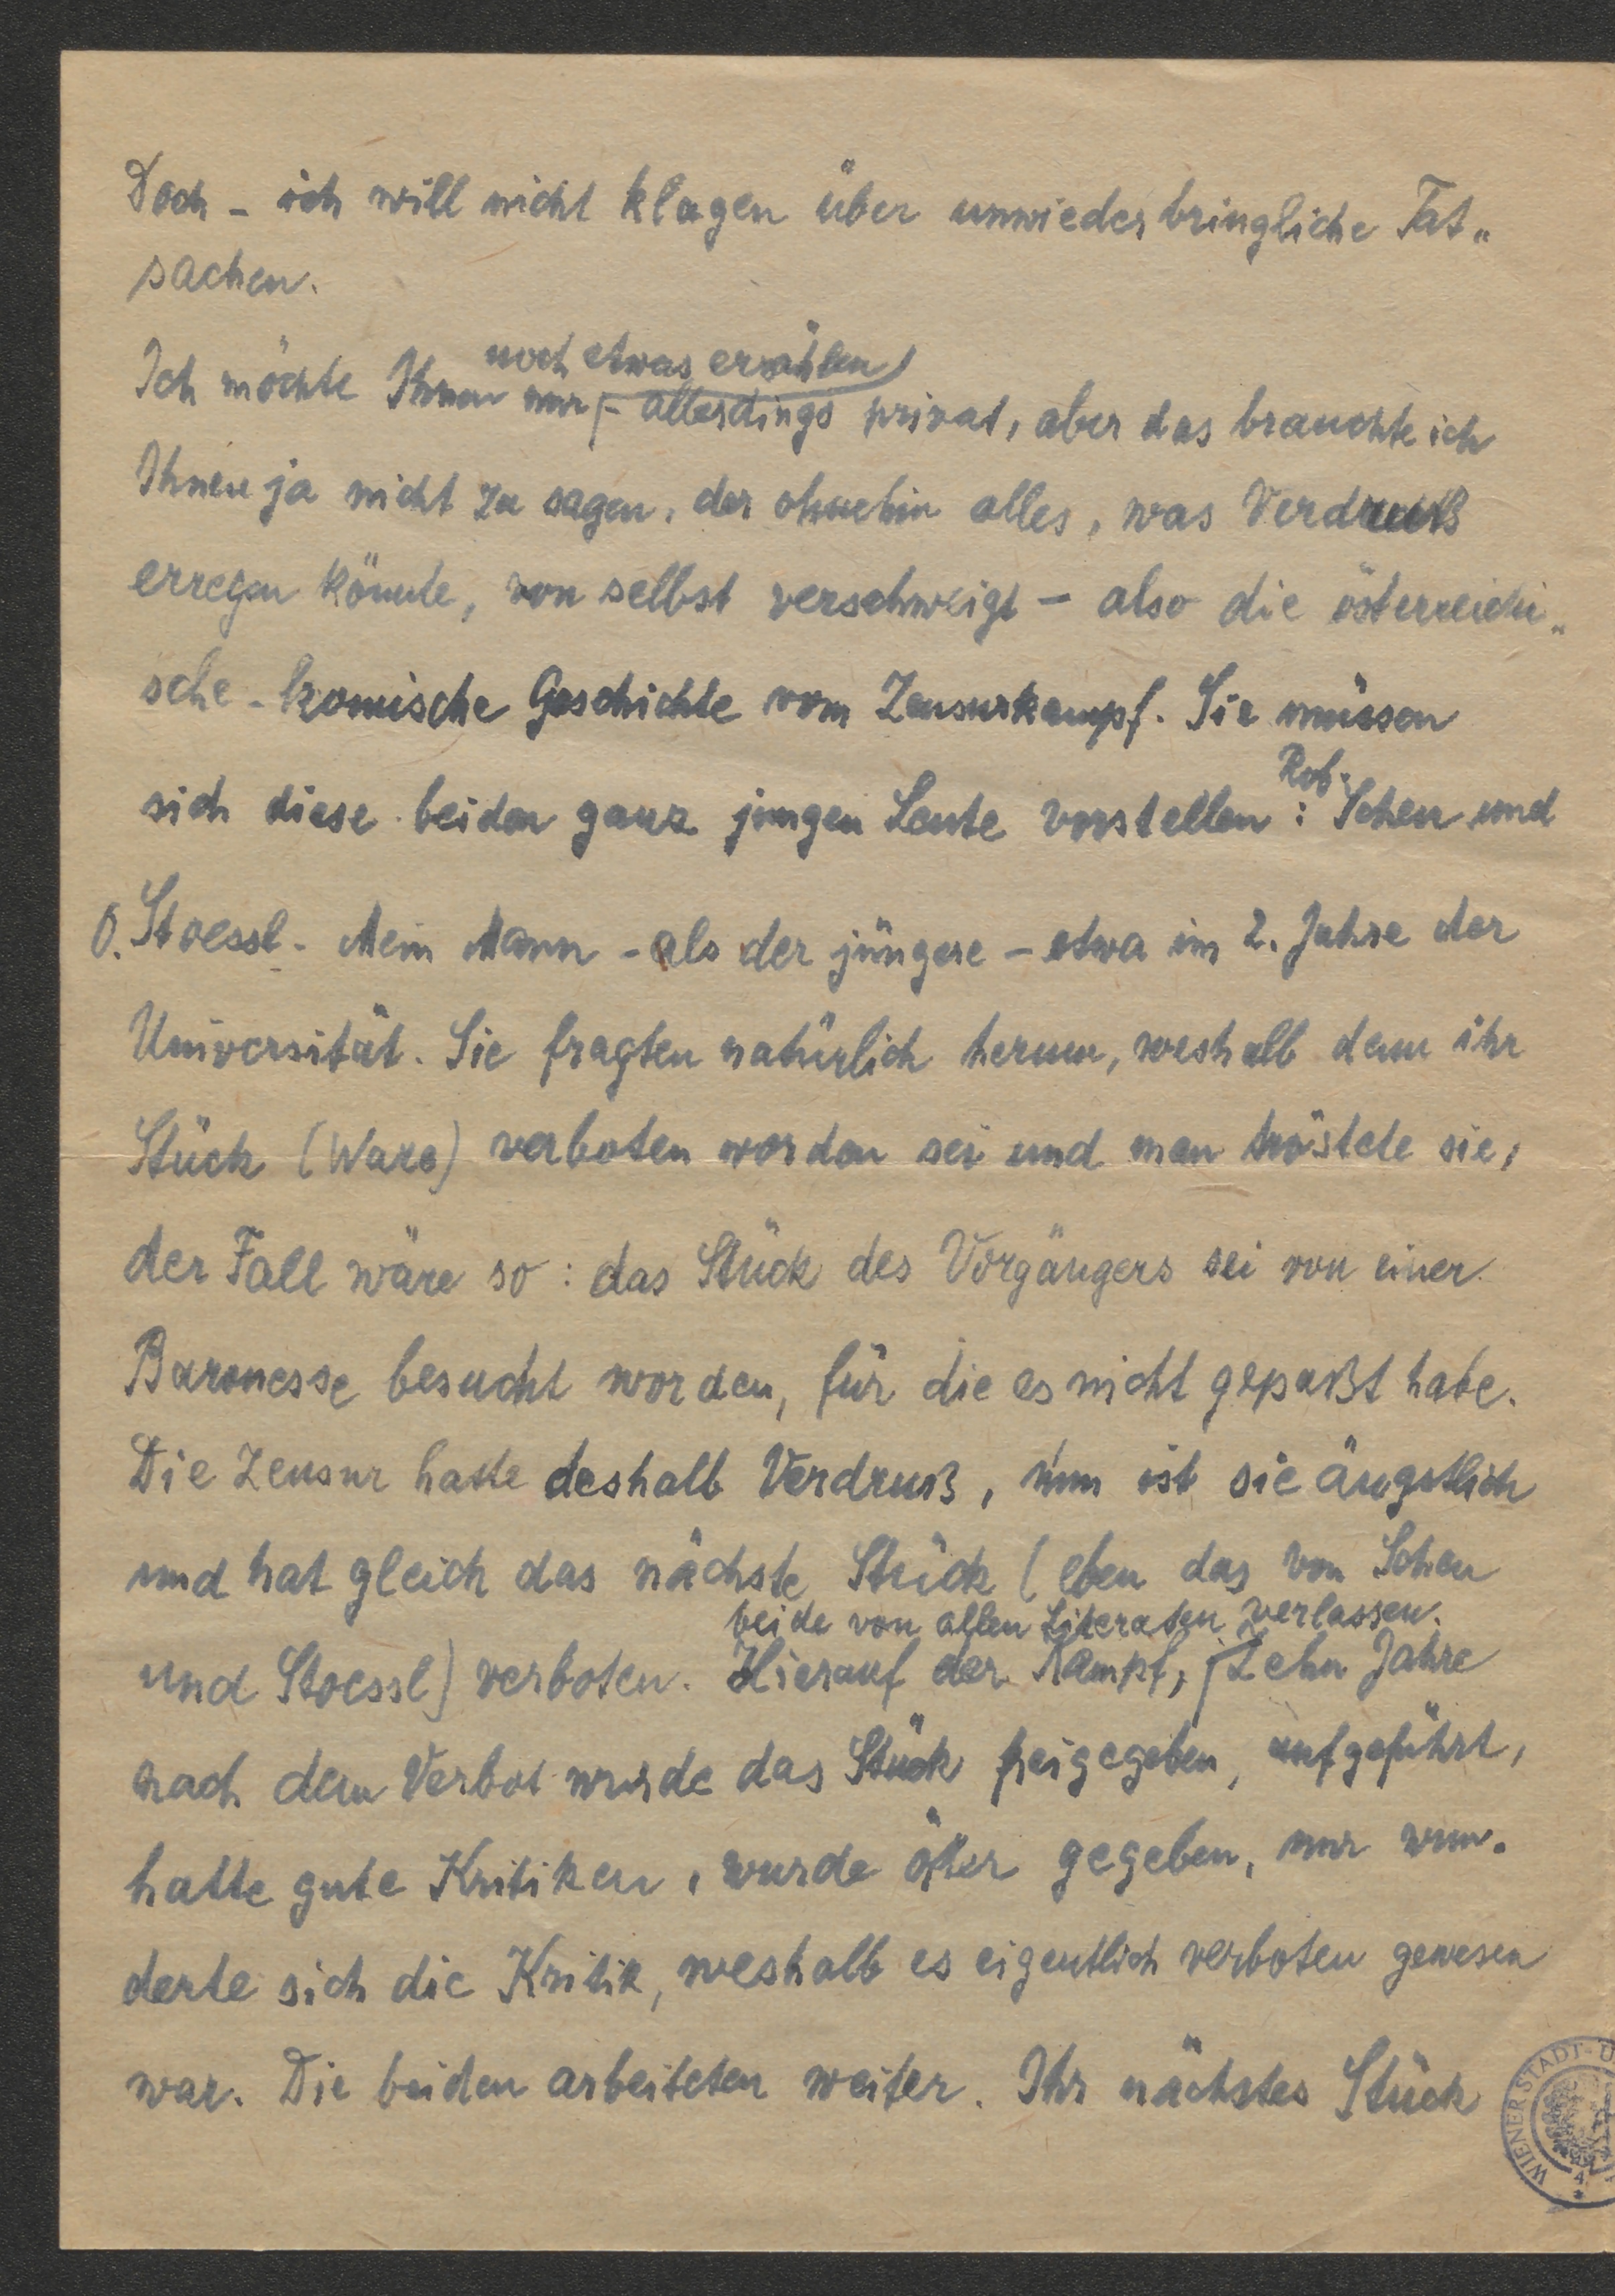 Doch – ich will nicht klagen über unwiederbringliche Tat„
sachen.
noch etwas erzählen
Ich möchte Ihnen nur – allerdings privat, aber das brauchte ich
Ihnen ja nicht zu sagen, der ohnehin alles, was Verdruß
erregen könnte, von selbst verschweigt – also die österreichi„
sche - komische Geschichte vom Zensurkampf. Sie müssen
Rob.
sich diese beiden ganz jungen Leute vorstellen: Scheu und
O. Stoessl. Mein Mann – als der jüngere – etwa im 2. Jahre der
Universität. Sie fragten natürlich herum, weshalb denn ihr
Stück (Ware) verboten worden sei und man tröstete sie,
der Fall wäre so: das Stück des Vorgängers sei von einer
Baronesse besucht worden, für die es nicht gepaßt habe.
Die Zensur hatte deshalb Verdruß, nun ist sie ängstlich
und hat gleich das nächste Stück (eben das von Scheu
beide von allen Literaten verlassen.
und Stoessl) verboten. Hierauf der Kampf, Zehn Jahre
nach dem Verbot wurde das Stück freigegeben, aufgeführt,
hatte gute Kritiken, wurde öfter gegeben, nur wun-
derte sich die Kritik, weshalb es eigentlich verboten gewesen
war. Die beiden arbeiteten weiter. Ihr nächstes Stück
WIENER STADT-